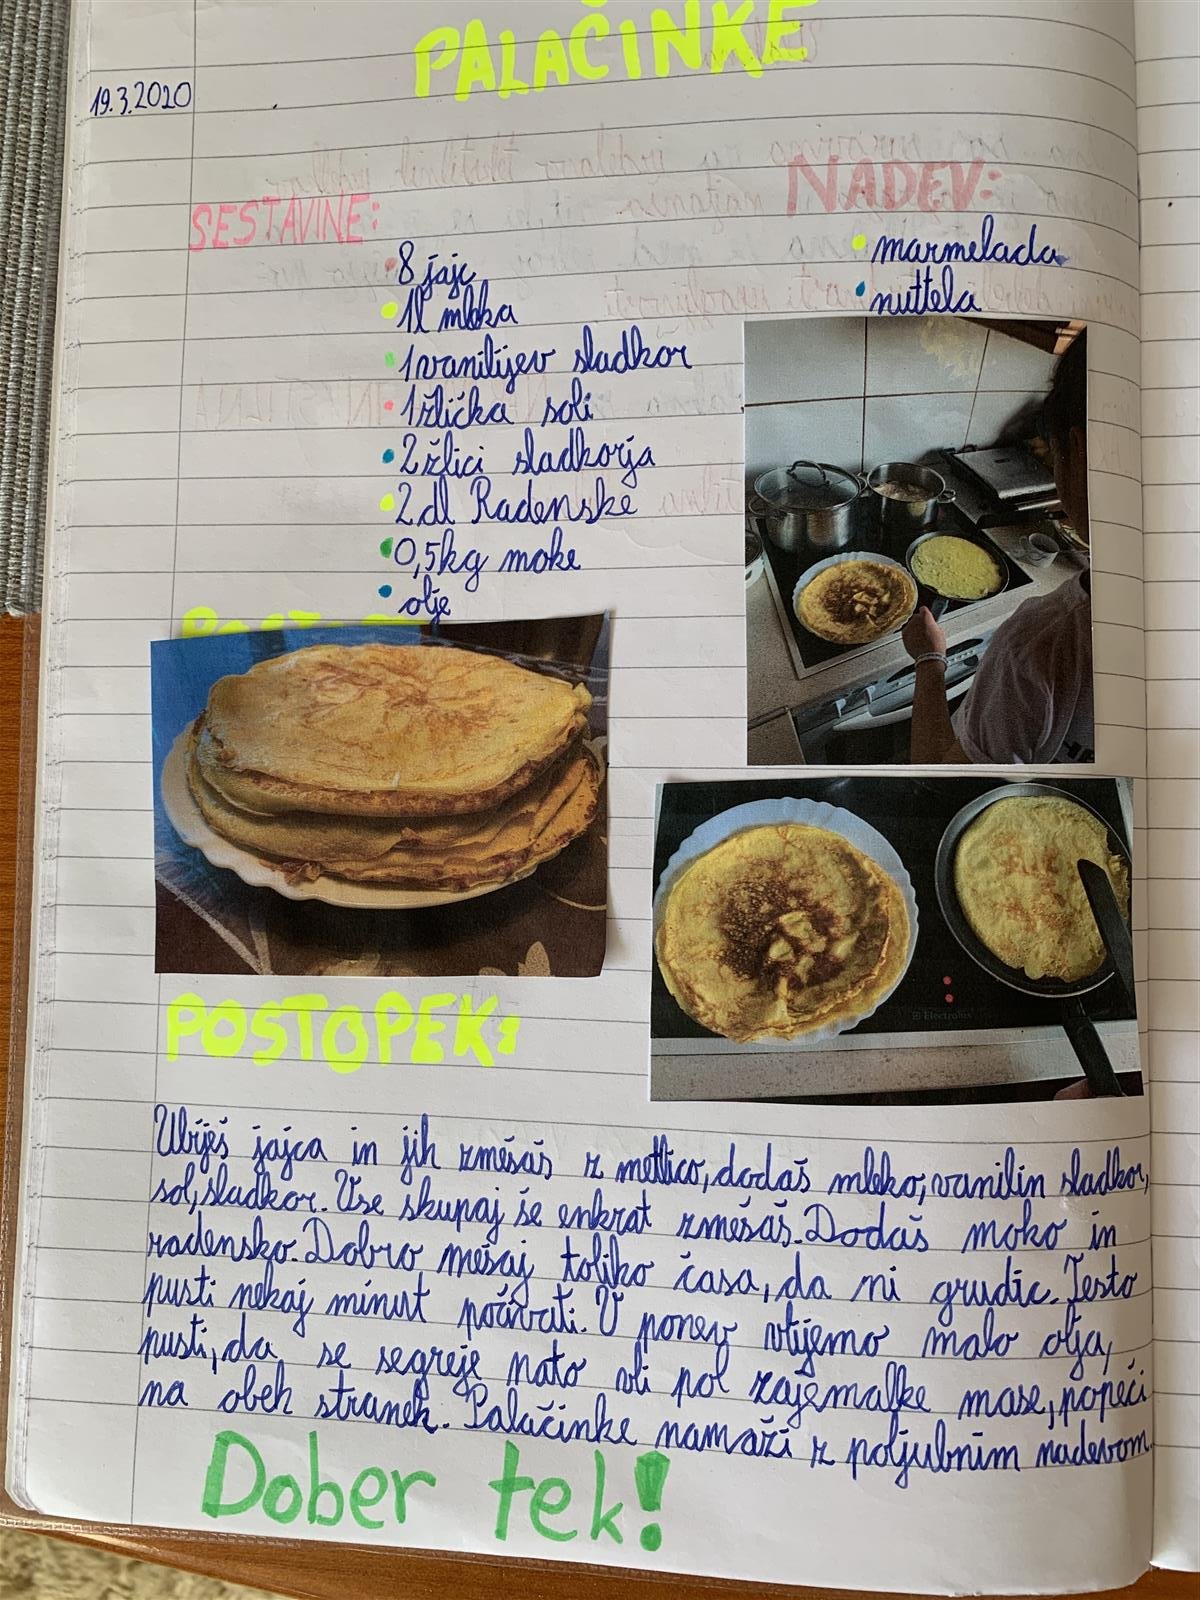 PALAČINKE
19.3.2020
SESTAVINE:
8 jajc
1l mleka
1 vanilijev sladkor
1 žlička soli
2 žlici sladkorja
2 dl Radenske
0,5kg moke
olje
NADEV:
marmelada
nuttela
Electrolux
POSTOPEK:
Ubiješ jajca in jih zmešaš z metlico, dodaš mleko, vanilin sladkor,
sol, sladkor. Vse skupaj še enkrat zmešaš. Dodaš moko in
radensko. Dobro mešaj toliko časa, da ni grudic. Testo
pusti nekaj minut počivati. V ponev vlijemo malo olja,
pusti, da se segreje nato vli pol zajemalke mase, popeči
na obeh straneh. Palačinke namaži z poljubnim nadevom.
Dober tek!